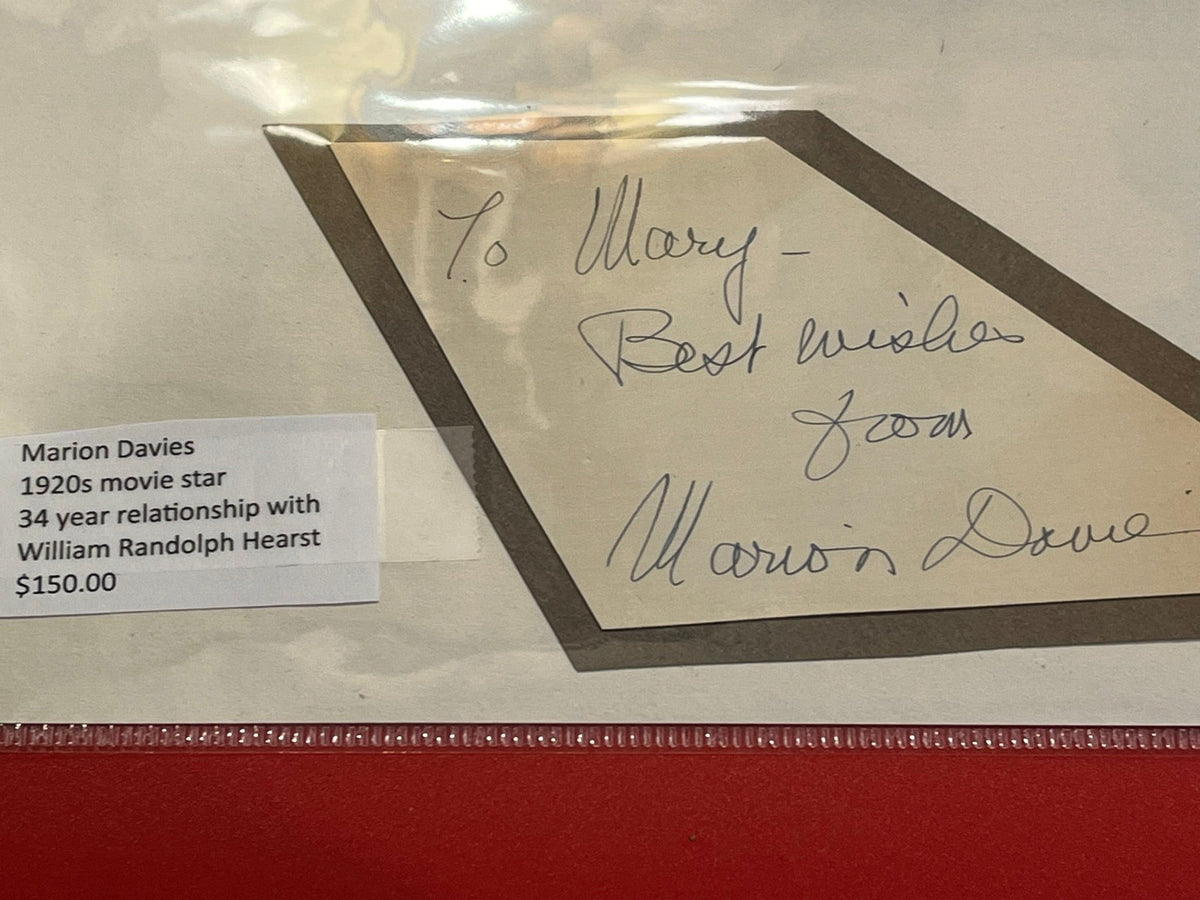 To Mary -
Best wishes
from
Marion Davie
Marion Davies
1920s movie star
34 year relationship with
William Randolph Hearst
$150.00